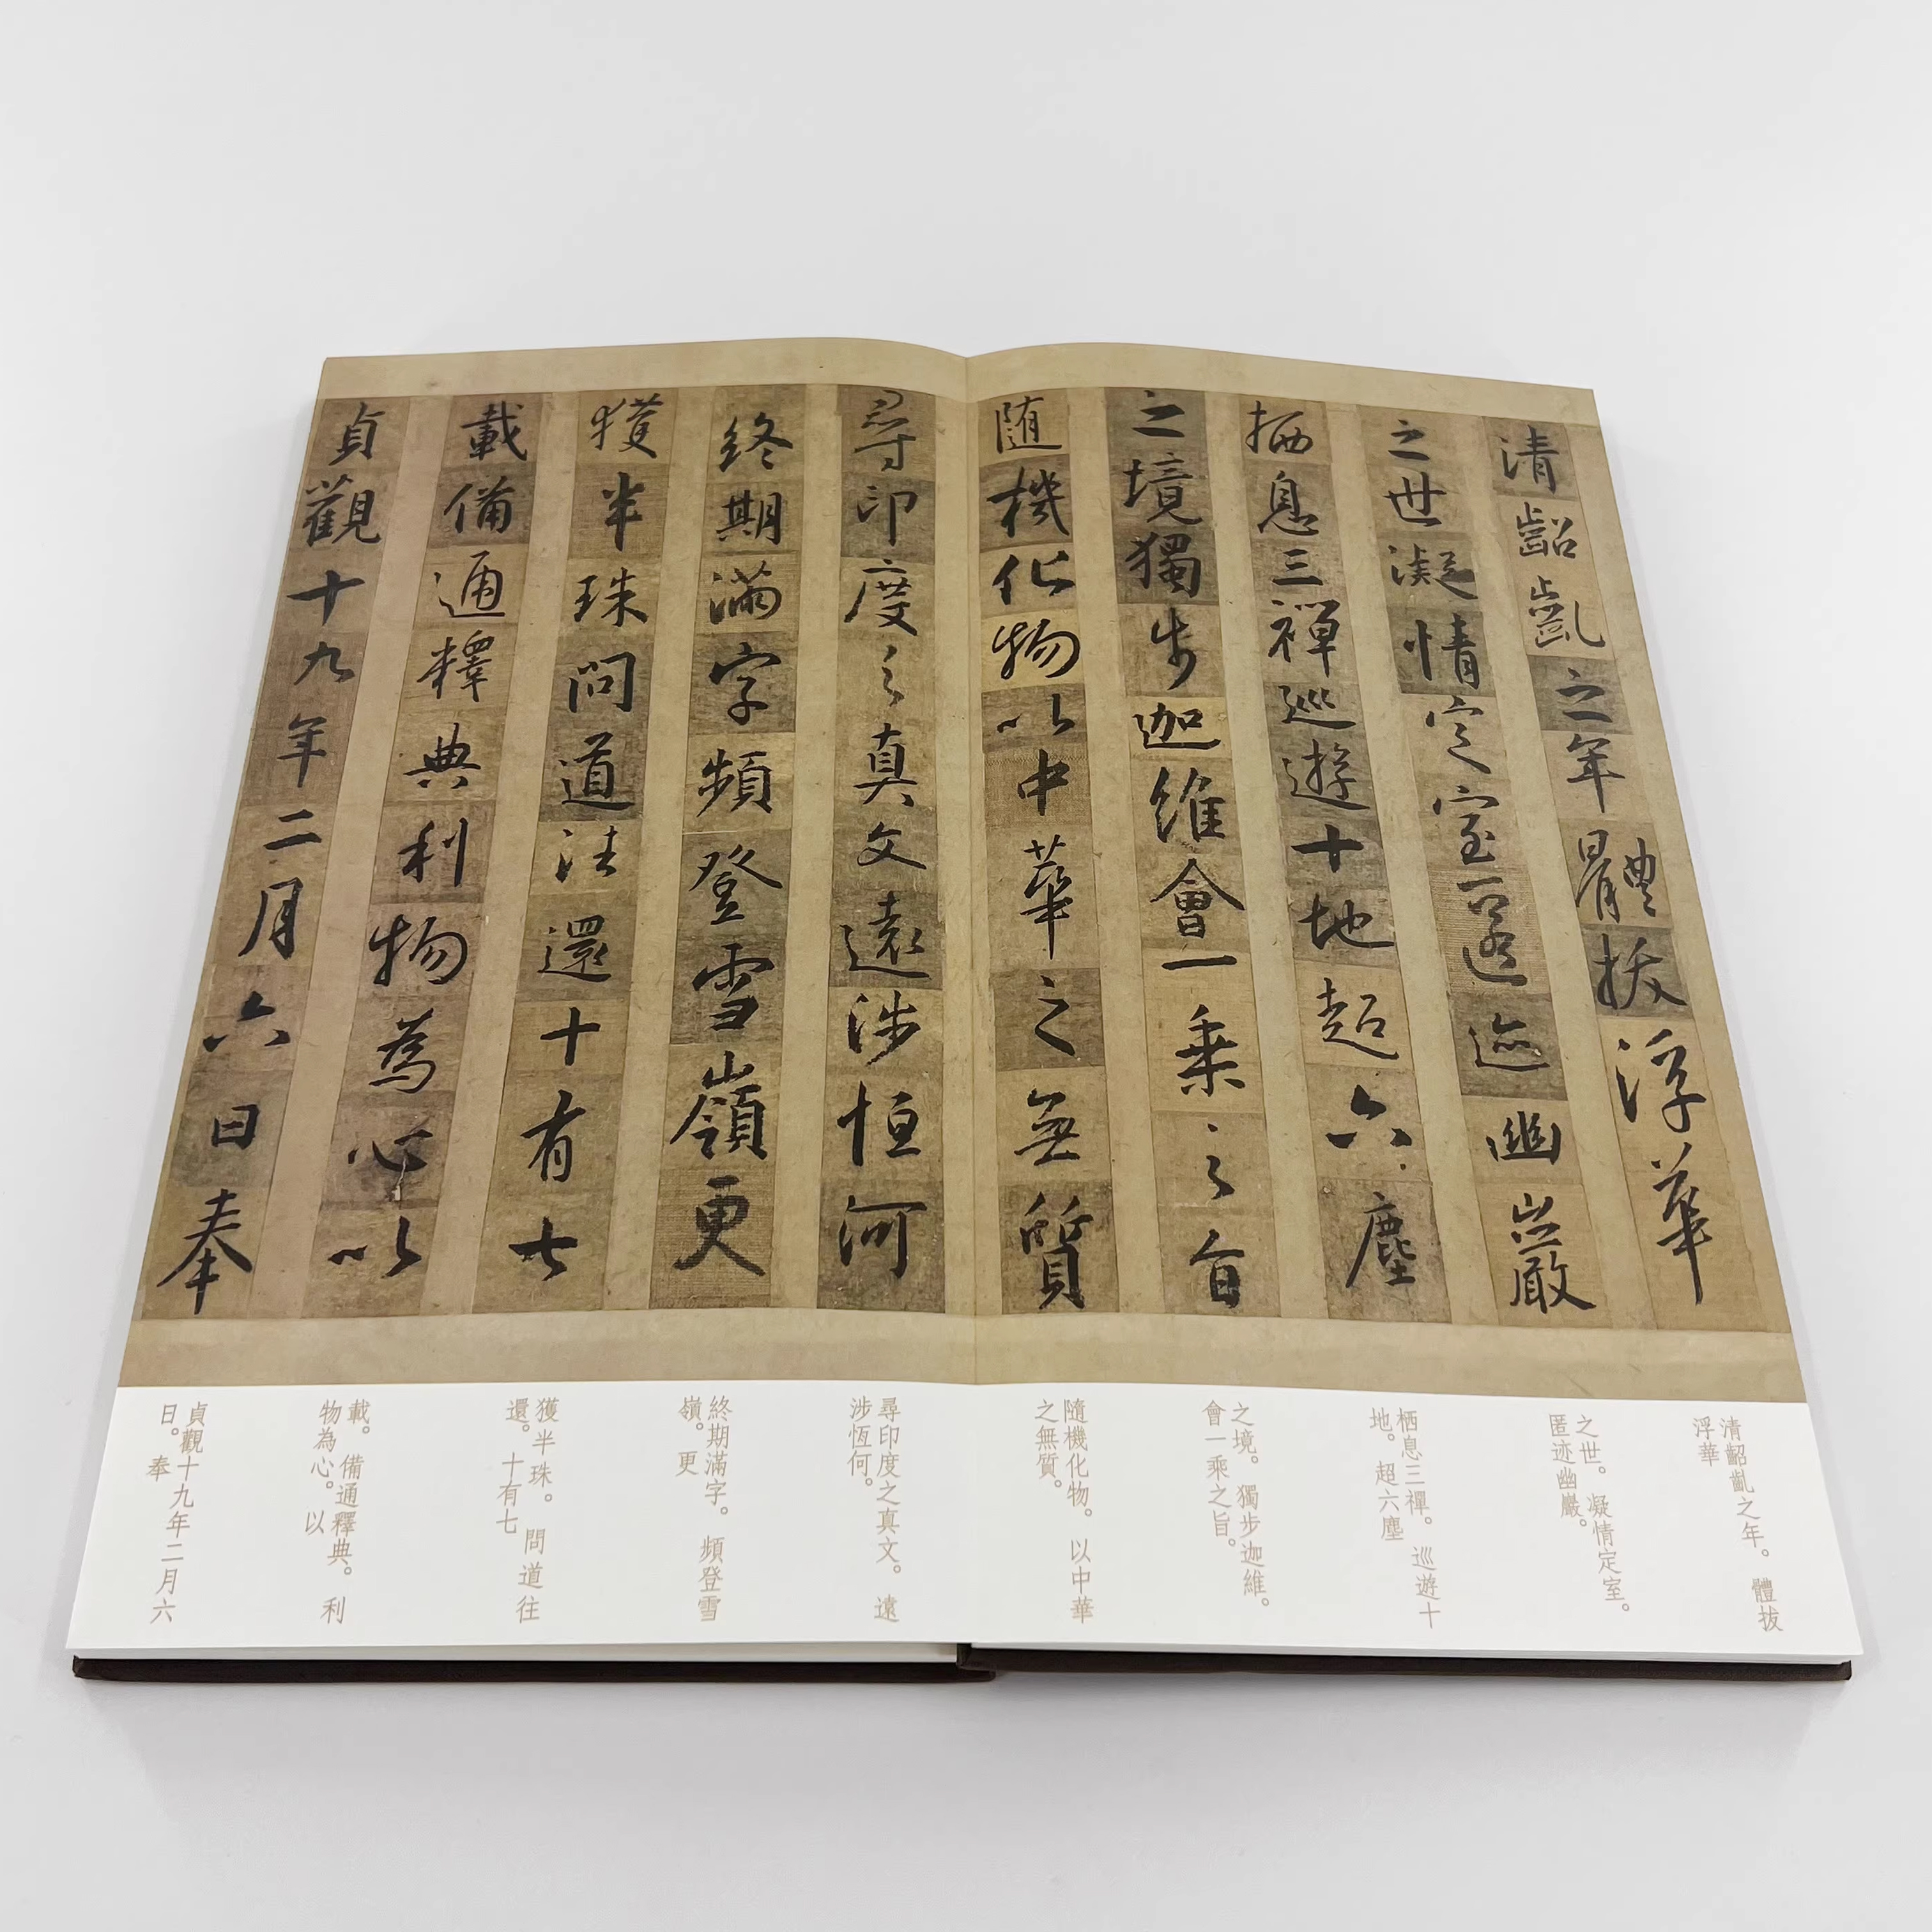 清齠齔之年體拔浮華
之世凝情定室匿迹幽巖
栖息三禪巡遊十地超六塵
之境獨步迦維會一乘之旨
随機化物以中華之無質
尋印度之真文遠涉恒河
終期滿字頻登雪嶺更
獲半珠問道往還十有七
載備通釋典利物為心以
貞觀十九年二月六日奉
清齠齔之年。體拔
浮華
之世。凝情定室。
匿迹幽巖。
栖息三禪。巡遊十
地。超六塵
之境。獨步迦維。
會一乘之旨。
隨機化物。以中華
之無質。
尋印度之真文。遠
涉恆河。
終期滿字。頻登雪
嶺。更
獲半珠。問道往
還。十有七
載。備通釋典。利
物為心。以
貞觀十九年二月六
日。奉